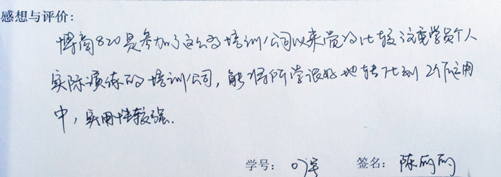 感想与评价:
博商820是参加了这么多培训公司以来说为比较注重学员个人
实际演练的培训公司,能将所学很好地转化到工作应用
中,实用性较强.
学号: 签名:陈丽丽